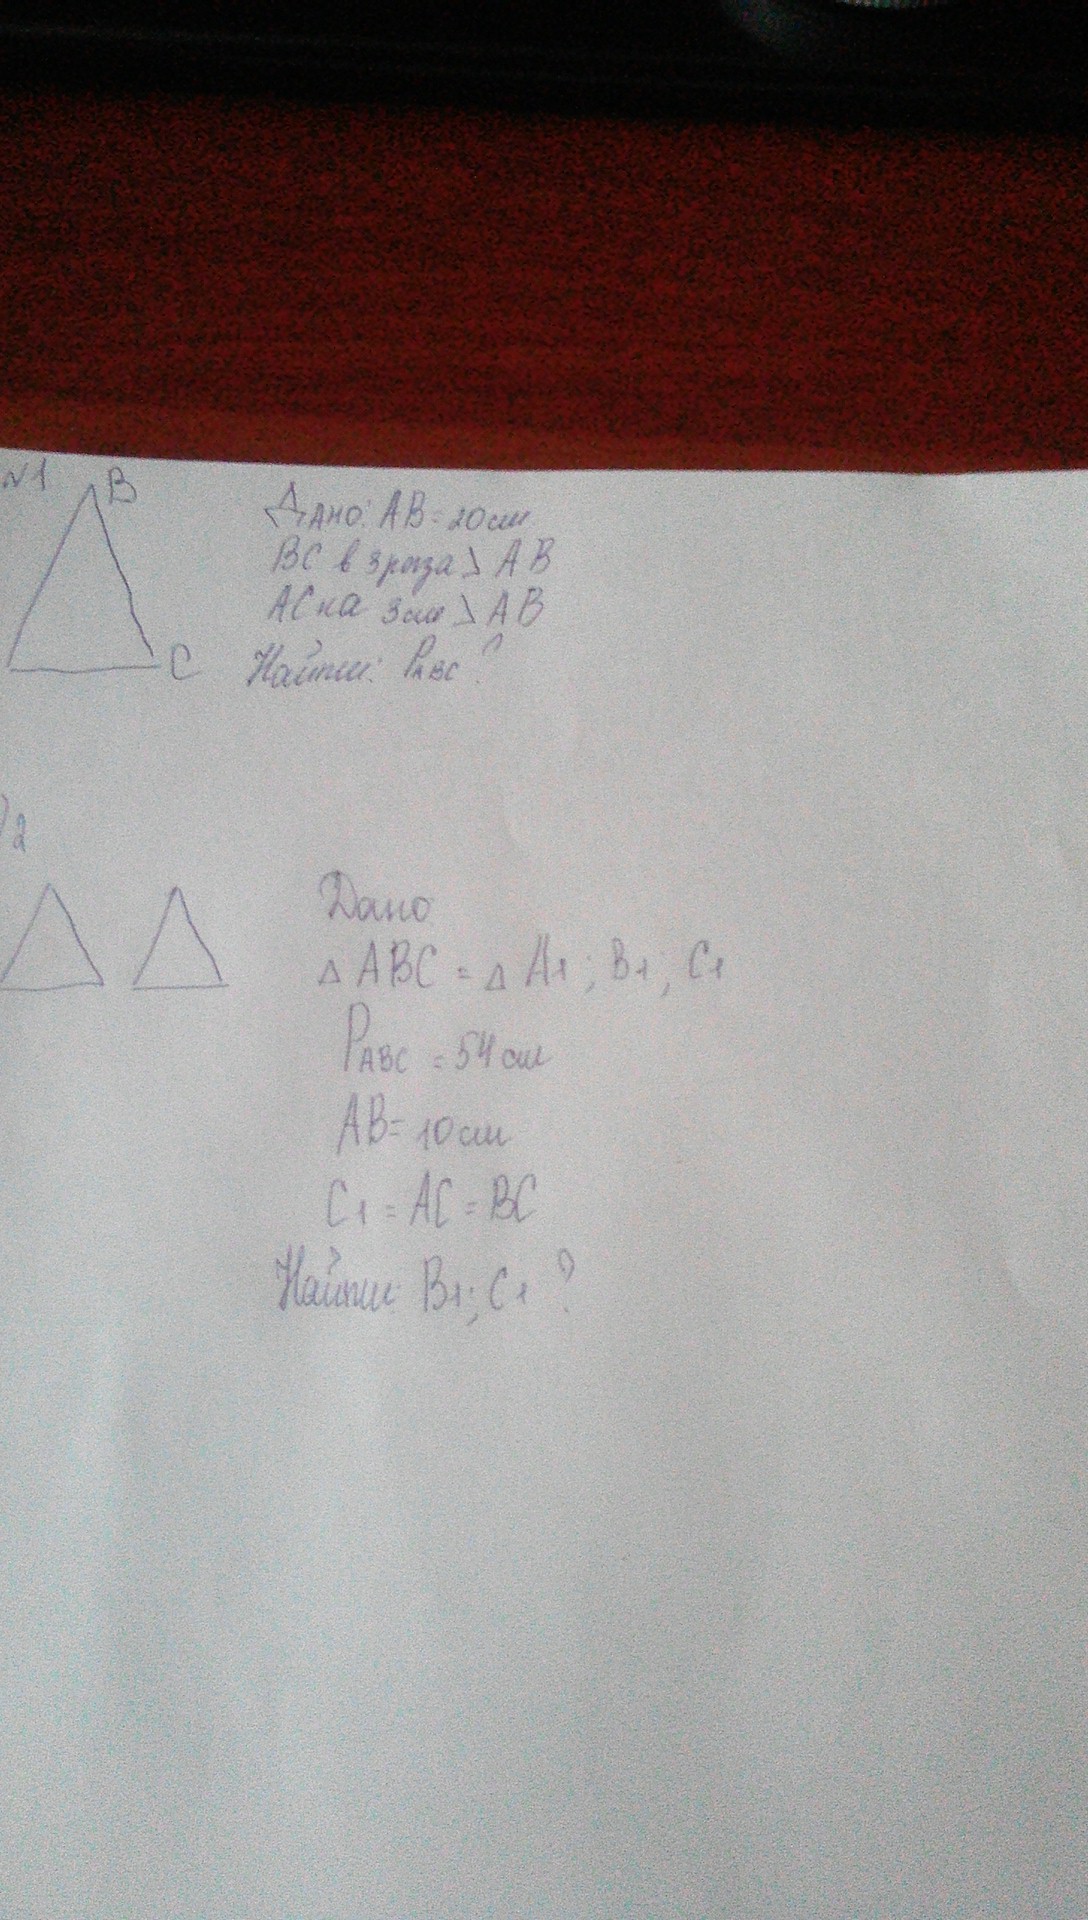 №1
B
C
Дано: AB = 20см
BC в 3 раза > AB
AC на 3см > AB
Найти: PABC ?
2
Дано
△ ABC = △ A1 ; B1 ; C1
PABC = 54 см
AB = 10см
C1 = AC = BC
Найти: B1 ; C1 ?